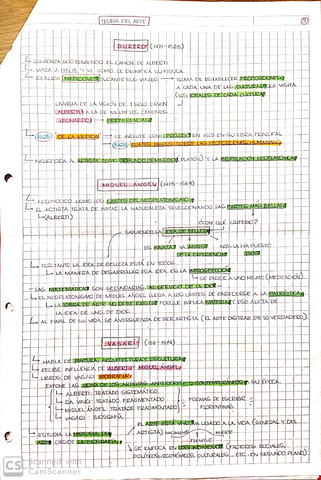 TEORÍA DEL ARTE
DURERO (1471-1528)
COMIENZA DEFENDIENDO EL CANON DE ALBERTI
VIAJA A ITALIA Y VE COMO SE DIGNIFICA SU FIGURA
REALIZA MEDICIONES DURANTE SUS VIAJES → TRATA DE ESTABLECER PROPORCIONES
A CADA UNA DE LAS CULTURAS QUE VISITA
(SUS IDEALES DE CADA CULTURA)
CAMBIA DE LA VISIÓN DE 1 SOLO CANON
(ALBERTI) A LA DE MÚLTIPLES CÁNONES
(LEONARDO) → DIFERENCIAS
1523 DE LA MEDIDA → SE INCLUYE COMO PRÓLOGO EN 1528 EN SU OBRA PRINCIPAL
1528 CUATRO LIBROS SOBRE LAS PROPORCIONES HUMANAS
INCORPORA A ARTISTA COMO DEMIURGO (PLATÓN) Y LA INSPIRACIÓN NEOPLATÓNICA
MIGUEL ÁNGEL (1475-1564)
RECONOCIDO COMO LOS LÍMITES DEL NEOPLATONISMO
EL ARTISTA TRATA DE IMITAR LA NATURALEZA SELECCIONANDO LAS PARTES MÁS BELLAS
(ALBERTI)
¿CON QUÉ CRITERIO?
SIGUIENDO LA IDEA DE BELLEZA
ES INNATA VA ANTES DE LA EXPERIENCIA NOS LA HA PUESTO DIOS
POR TANTO LA IDEA DE BELLEZA ESTÁ EN TODOS
LA MANERA DE DESARROLLAR ESA IDEA ES LA INTROSPECCIÓN
SE DIRIGE A UNO MISMO (MEDITACIÓN)
LAS MATEMÁTICAS SON SECUNDARIAS AL SERVICIO DE LA IDEA
EL NEOPLATONISMO DE MIGUEL ÁNGEL LLEVA A LOS LÍMITES
LA OBRA DE ARTE NO DEBE EXISTIR PORQUE IMPLICA MATERIA Y ESO ALEJA DE
LA IDEA DE UNO, DE DIOS
AL FINAL DE SU VIDA SE AVERGÜENZA DE SER ARTISTA (EL ARTE DISTRAE DE LO VERDADERO)
VASARI (1511-1574)
HABLA DE PINTURA, ARQUITECTURA Y ESCULTURA
RECIBE INFLUENCIA DE ALBERTI Y MIGUEL ÁNGEL
LIBROS DE VASARI BIOGRAFÍA
EXPONE LAS VIDAS DE LOS ARTISTAS ANTERIORES Y CONTEMPORÁNEOS A SU ÉPOCA
ALBERTI: TRATADO SISTEMÁTICO
DA VINCI: TRATADO FRAGMENTADO
MIGUEL ÁNGEL: TRATADO FRAGMENTADO
VASARI: BIOGRAFÍA
FORMAS DE ESCRIBIR
FLORENTINAS
EL ARTE LLEVA VINCULADO LA VIDA (GENERAL Y DEL
ARTISTA) NACIMIENTO MUERTE
ESTUDIA LA HISTORIA DEL
ARTE DESDE LA BIOGRAFÍA
SE ENFOCA EN LOS INDIVIDUOS (FACTORES SOCIALES,
POLÍTICOS, ECONÓMICOS, CULTURALES... ETC. EN SEGUNDO PLANO)
CS Scanned with
CamScanner